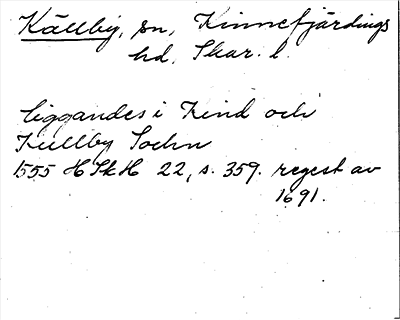 Källby, sn, Kinnefjärdings
hd, Skar. l.
liggandes i Kind och
Kullby Sochn
1555 HSkH 22, s. 359. regest av
1691.